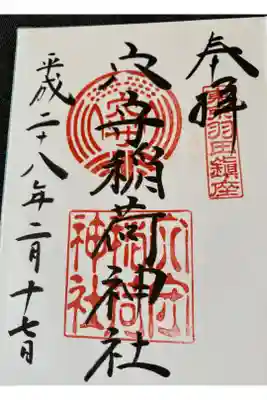 奉拝
羽田鎮座
穴守稲荷神社
穴守
稲荷
神社
平成二十八年二月十七日